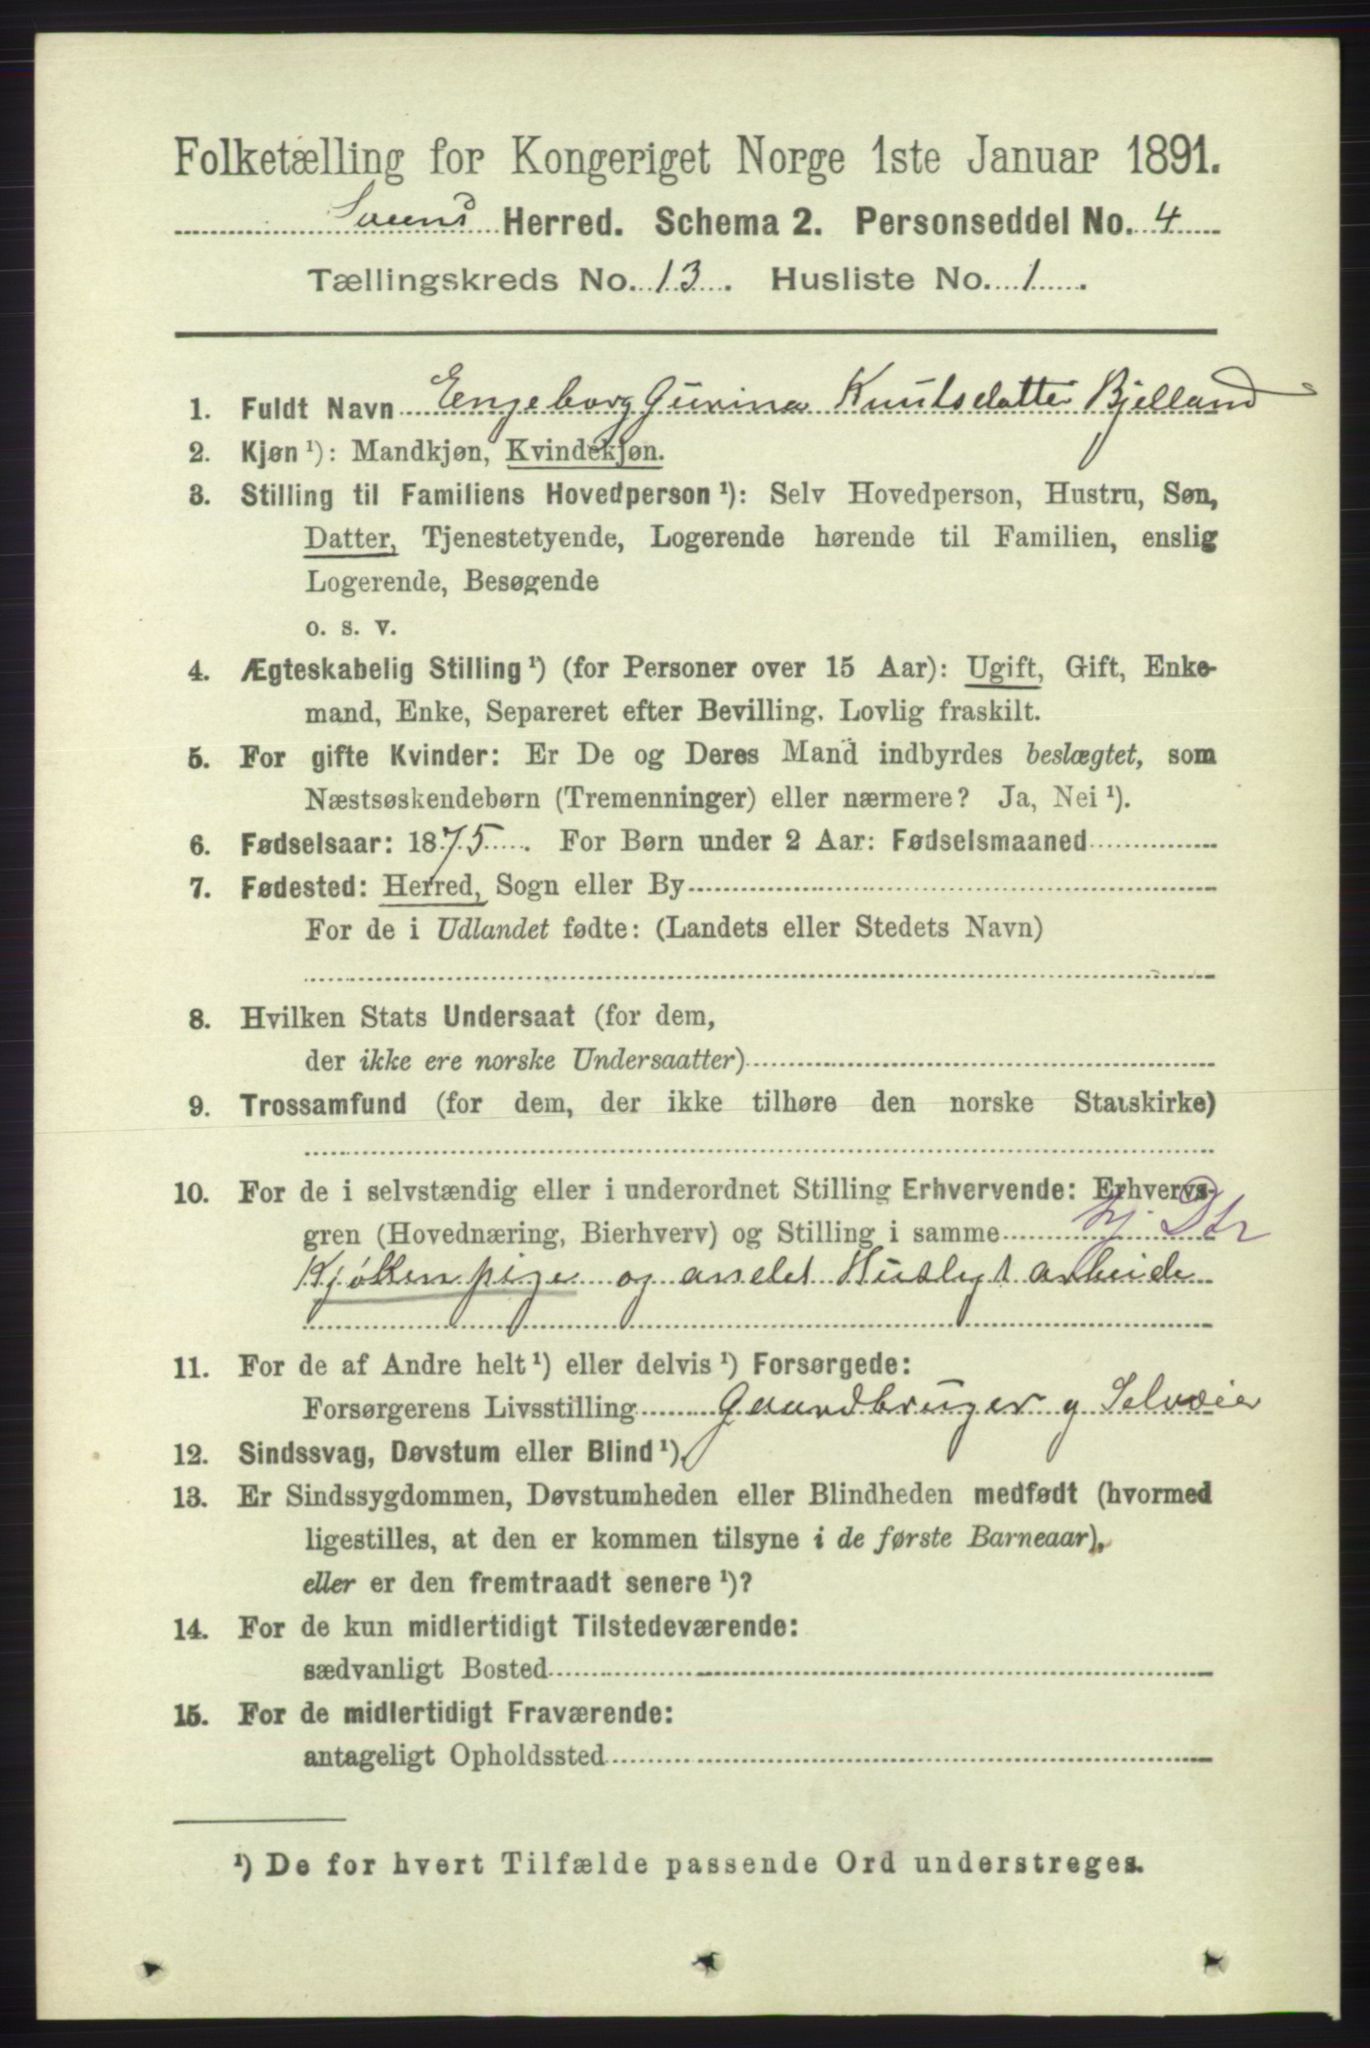 Folketælling for Kongeriget Norge 1ste Januar 1891.
Herred. Schema 2. Personseddel No. 4
Tællingskreds No. 13. Husliste No. 1.
1. Fuldt Navn Engeborg Gurina Knutsdatter Bjelland
2. Kjøn ¹): Mandkjøn, Kvindekjøn.
3. Stilling til Familiens Hovedperson ¹): Selv Hovedperson, Hustru, Søn,
Datter, Tjenestetyende, Logerende hørende til Familien, enslig
Logerende, Besøgende
o. s. v.
4. Ægteskabelig Stilling ¹) (for Personer over 15 Aar): Ugift, Gift, Enke-
mand, Enke, Separeret efter Bevilling. Lovlig fraskilt.
5. For gifte Kvinder: Er De og Deres Mand indbyrdes beslægtet, som
Næstsøskendebørn (Tremenninger) eller nærmere? Ja, Nei ¹).
6. Fødselsaar: 1875. For Børn under 2 Aar: Fødselsmaaned
7. Fødested: Herred, Sogn eller By
For de i Udlandet fødte: (Landets eller Stedets Navn)
8. Hvilken Stats Undersaat (for dem,
der ikke ere norske Undersaatter)
9. Trossamfund (for dem, der ikke tilhøre den norske Statskirke)
10. For de i selvstændig eller i underordnet Stilling Erhvervende: Erhvervs-
gren (Hovednæring, Bierhverv) og Stilling i samme hj. Dtr
Kjøkkenpige og andet Husligt arbeide
11. For de af Andre helt ¹) eller delvis ¹) Forsørgede:
Forsørgerens Livsstilling Gaardbruger g Selveier
12. Sindssvag, Døvstum eller Blind ¹).
13. Er Sindssygdommen, Døvstumheden eller Blindheden medfødt (hvormed
ligestilles, at den er kommen tilsyne i de første Barneaar),
eller er den fremtraadt senere ¹)?
14. For de kun midlertidigt Tilstedeværende:
sædvanligt Bosted
15. For de midlertidigt Fraværende:
antageligt Opholdssted
¹) De for hvert Tilfælde passende Ord understreges.